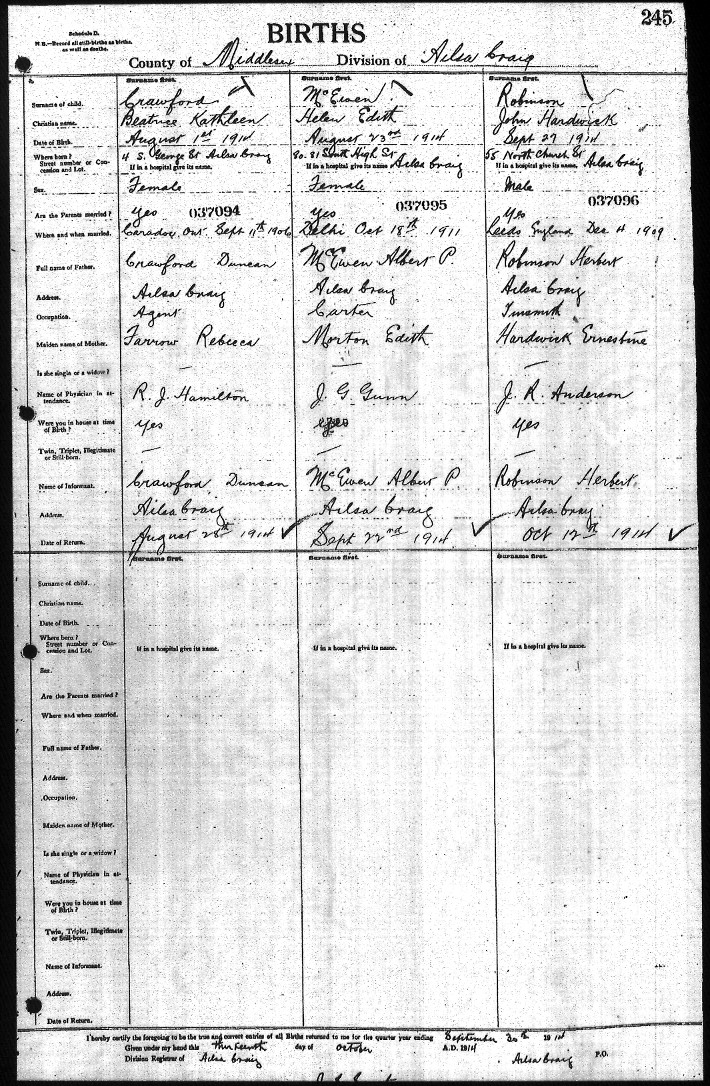 245
Schedule D.
N.B.—Record all still-births as births, as well as deaths.
BIRTHS
County of Middlesex Division of Ailsa Craig
Surname first. Surname first. Surname first.
Surname of child. Crawford McEwen Robinson
Christian name. Beatrice Kathleen Helen Edith John Hardwick
Date of Birth. August 1st 1914 August 23rd 1914 Sept 27 1914
Where born? 4 S. George St Ailsa Craig 80.81 South High St Ailsa Craig 58 North Church St Ailsa Craig
Street number or Concession and Lot. If in a hospital give its name. If in a hospital give its name. If in a hospital give its name.
Sex. Female Female Male
037094 037095 037096
Are the Parents married? yes yes yes
Where and when married. Caradoc, Ont. Sept 11th 1906 Delhi Oct 18th 1911 Leeds England Dec 4 1909
Full name of Father. Crawford Duncan McEwen Albert P. Robinson Herbert
Address. Ailsa Craig Ailsa Craig Ailsa Craig
Occupation. Agent Carter Tinsmith
Maiden name of Mother. Farrow Rebecca Morton Edith Hardwick Ernestine
Is she single or a widow? — — —
Name of Physician in attendance. R. J. Hamilton J. G. Gunn J. R. Anderson
Were you in house at time of Birth? yes yes yes
Twin, Triplet, Illegitimate or Still-born. — — —
Name of Informant. Crawford Duncan McEwen Albert P. Robinson Herbert
Address. Ailsa Craig Ailsa Craig Ailsa Craig
Date of Return. August 28th 1914 ✓ Sept 22nd 1914 ✓ Oct 12th 1914 ✓
Surname first. Surname first. Surname first.
Surname of child.
Christian name.
Date of Birth.
Where born?
Street number or Concession and Lot. If in a hospital give its name. If in a hospital give its name. If in a hospital give its name.
Sex.
Are the Parents married?
Where and when married.
Full name of Father.
Address.
Occupation.
Maiden name of Mother.
Is she single or a widow?
Name of Physician in attendance.
Were you in house at time of Birth?
Twin, Triplet, Illegitimate or Still-born.
Name of Informant.
Address.
Date of Return.
I hereby certify the foregoing to be the true and correct entries of all Births returned to me for the quarter year ending September 30th 1914
Given under my hand this thirteenth day of October A.D. 1914
Division Registrar of Ailsa Craig Ailsa Craig P.O.